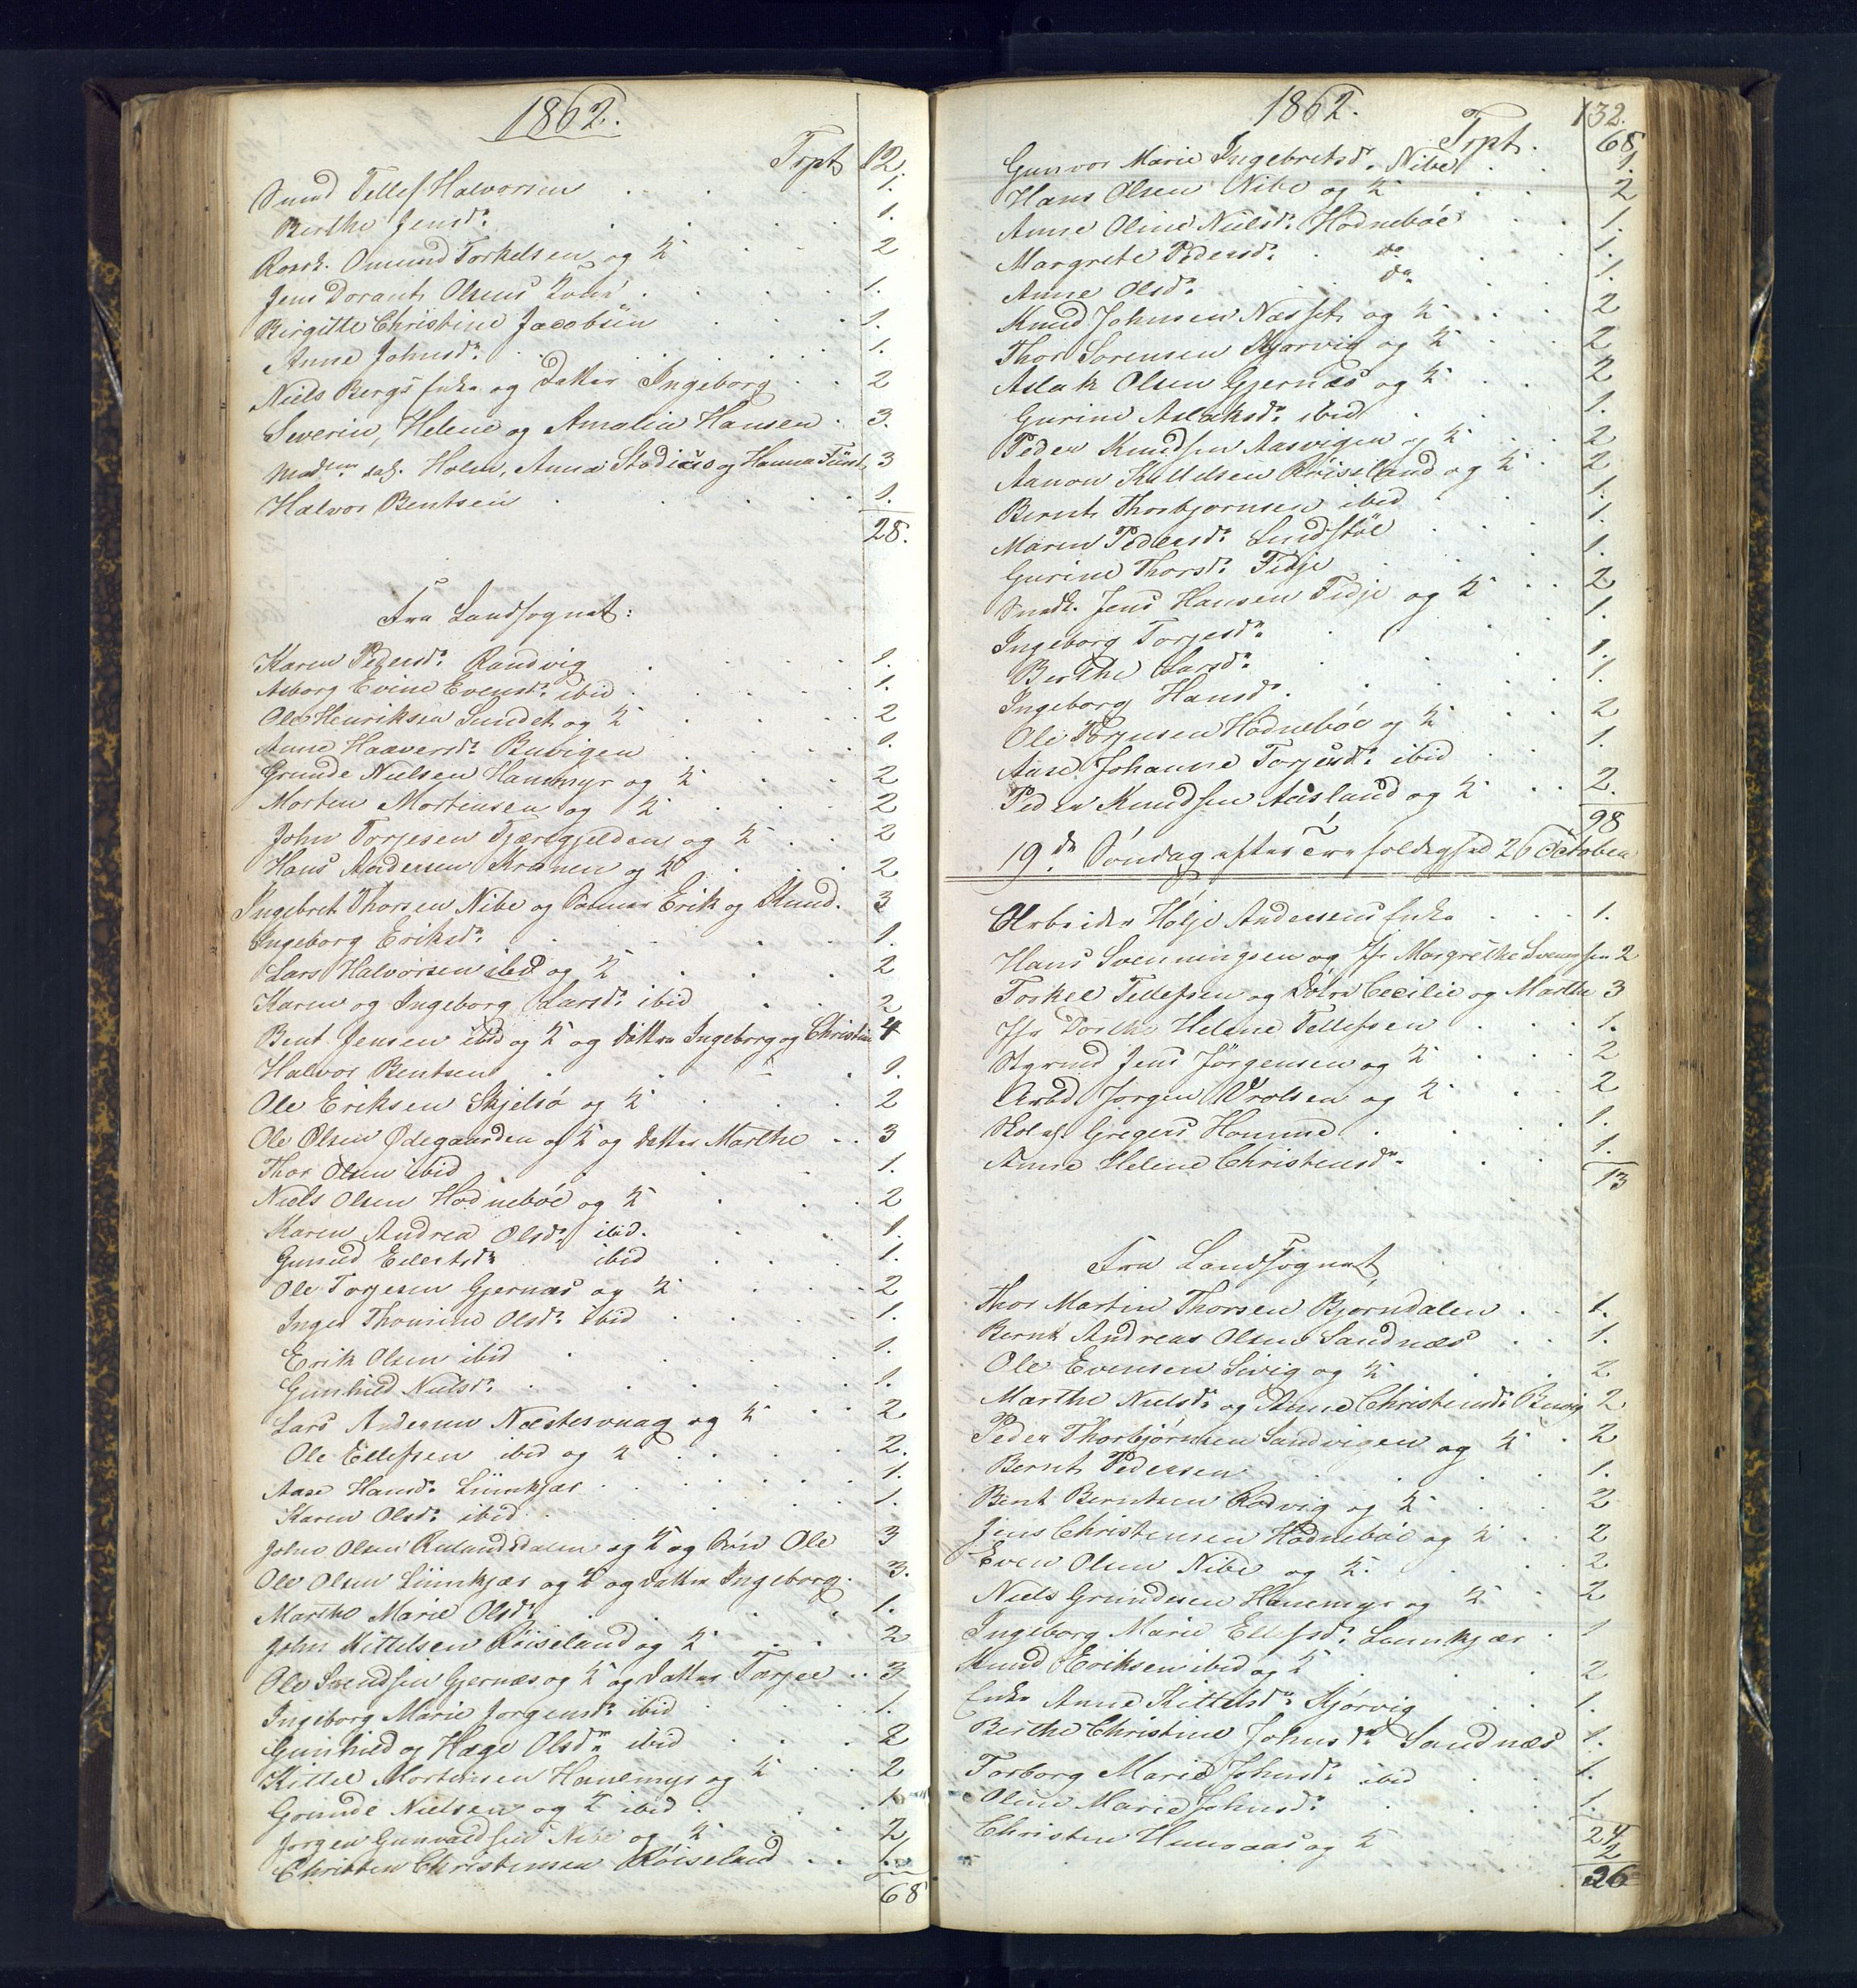 1862.
Trpt 12.
Smed Tellef Halvorsen . . . 1.
Berthe Jensdr. . . . 1.
Omund Torkelsen og K 2
Jens Dorants Olsens . . . 1.
Birgitte Christine Jacobsen . . . 1.
Anne Johnsdr. . . . 1.
Niels Bergs Enke og Datter Ingeborg . . 2
Severin, Helene og Amalia Hansen . 3.
Holm, Anna Stadius og Hanna Fürst 3
Halvor Bentsen . . . 1.
28.
Fra Landsognet:
Karen Pedersdr. Randvig . . . 1.
Asborg Evine Evensdr. ibid . . . 1.
Ole Henriksen Sundet og K . . . 2
Anne Haaversdr. Buvigen . . . 1.
Grunde Nielsen Hanemyr og K . . 2
Morten Mortensen og K . . . 2
John Torjesen Tjæregjelden og K . . 2
Hans Andersen Kranen og K . . . 2
Ingebret Thorsen Nibe og Sønner Erik og Knud. 3
Ingeborg Eriksdr. . . . 1.
Lars Halvorsen ibid og K . . . 2
Karen og Ingeborg Larsdr. ibid . . 2
Bent Jensen ibid og K og Døttre Ingeborg og Christine 4
Halvor Bentsen . . . 1.
Ole Eriksen Skjelsø og K . . . 2
Ole Olsen Ødegaarden og K og Datter Marthe . . 3
Thor Olsen ibid . . . 1.
Niels Olsen Hodnebøe og K . . . 2
Karen Andrea Olsdr. ibid. . . 1.
Gunild Eilertsdr. ibid . . . 1.
Ole Torjesen Gjernæs og K . . . 2
Inger Thomine Olsdr. ibid . . . 1.
Erik Olsen ibid . . . 1.
Gunhild Nielsdr. . . . 1.
Lars Andersen Næstesvaag og K . . 2
Ole Ellefsen ibid og K . . . 2.
Aase Hansdr. Liimkjær . . . 1.
Karen Olsdr. ibid . . . 1.
John Olsen Rulandsdalen og K og Søn Ole 3
Ole Olsen Liimkjær og K og Datter Ingeborg . 3.
Marthe Marie Olsdr. . . . 1.
John Kittelsen Røiseland og K . . . 2
Ole Svendsen Gjernæs og K og Datter Torjer . . 3
Ingeborg Marie Jørgensdr. ibid . . . 1.
Gunhild og Hæge Olsdr. ibid . . . 2
Kittel Mortensen Hanemyr og K . . 2
Grunde Nielsen og K ibid . . . 1
Jørgen Gunvaldsen Nibe og K . . 2
Christen Christensen Røiseland . . 1.
68
1862. 132.
Trpt. 68
Gunvor Marie Ingebretsdr. Nibe . . 1.
Hans Olsen Nibe og K . . . 2
Anne Oline Nielsdr. Hodnebøe . . 1.
Margrete Pedersdr. . do . . 1.
Anne Olsdr. . . do . . 1.
Knud Johnsen Næsset og K . . . 2
Thor Sørensen Kjørvig og K . . 2
Aslak Olsen Gjernæs og K . . 2
Gurine Aslaksdr. ibid . . . 1.
Peder Knudsen Aasvigen og K . . 2
Aanon Kittelsen Røiseland og K . 2
Bernt Thorbjørnsen ibid . . 1.
Maren Pedersdr. Lindstøl . . . 1.
Gurine Thorsdr. Fidje . . . 1.
Jens Hansen Fidje og K . . 2
Ingeborg Torjesdr. . . . 1.
Berthe Larsdr. . . . 1.
Ingeborg Hansdr. . . . 1.
Ole Torjusen Hodnebøe og K . . 2
Aase Johanne Torjusdr. ibid . . 1.
Peder Knudsen Aasland og K . . 2.
98
19de Søndag efter Trefoldighed 26 October
Arbeider Holje Andersens Enke . . . 1.
Hans Svenningsen og Jfr Margrethe Svenningsen 2
Torkel Tellefsen og Døtre Cecilie og Marthe 3
Jfr Dorthe Helene Tellefsen . . . 1.
Styrmd Jens Jörgensen og K . . . 2
Arbd. Jørgen Wrolsen og K . . 2
Gregers Homme . . . 1.
Anne Helene Christensdr. . . 1.
13
Fra Landsognet
Thor Martin Thorsen Bjorndalen . . 1.
Bernt Andreas Olsen Sandnæs . . 1.
Ole Evensen Svig og K . . 2
Marthe Nielsdr. og Anne Christensdr. Buvig 2
Peder Thorbjörnsen Sandvigen og K . 2
Bernt Pedersen . . . 1.
Bent Berntsen Rødvig og K . . 2
Jens Christensen Hodnebøe og K . . 2
Even Olsen Nibe og K . . . 2
Niels Grundesen Hanemyr og K . . 2
Ingeborg Marie Ellefsdr. Liimkjær . 1
Knud Eriksen ibid og K . . . 2
Enke Anne Kittelsdr. Kjørvig . . 1.
Berthe Christine Johnsdr. Sandnæs 1.
Torborg Marie Johnsdr. ibid . . 1.
Oline Marie Johnsdr. . . . 1.
Christen Hunsaas og K 2
26